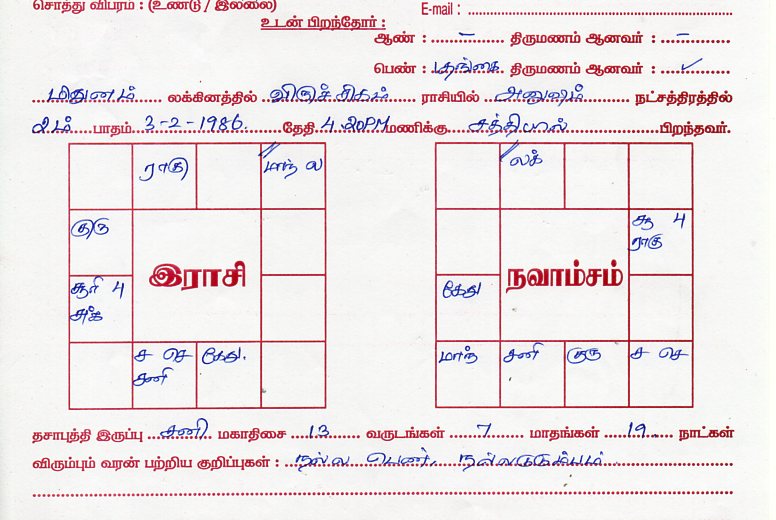 சொத்து விபரம் : (உண்டு / இல்லை)
E-mail :
உடன் பிறந்தோர் :
ஆண் : – திருமணம் ஆனவர் : –
பெண் : தங்கை திருமணம் ஆனவர் : ✓
மிதுனம் லக்கினத்தில் விருச்சிகம் ராசியில் அனுஷம் நட்சத்திரத்தில்
2ம் பாதம் 3-2-1986. தேதி 4.20PM மணிக்கு பிறந்தவர்.
ராகு மாந் ல
லக்
குரு
4
ராகு
இராசி
நவாம்சம்
சூரி 4
கேது
ச செ கேது.
சனி
மாந் சனி குரு ச செ
தசாபுத்தி இருப்பு சனி மகாதிசை 13 வருடங்கள் 7 மாதங்கள் 19 நாட்கள்
விரும்பும் வரன் பற்றிய குறிப்புகள் : நல்ல பெண், நல்லகுடும்பம்